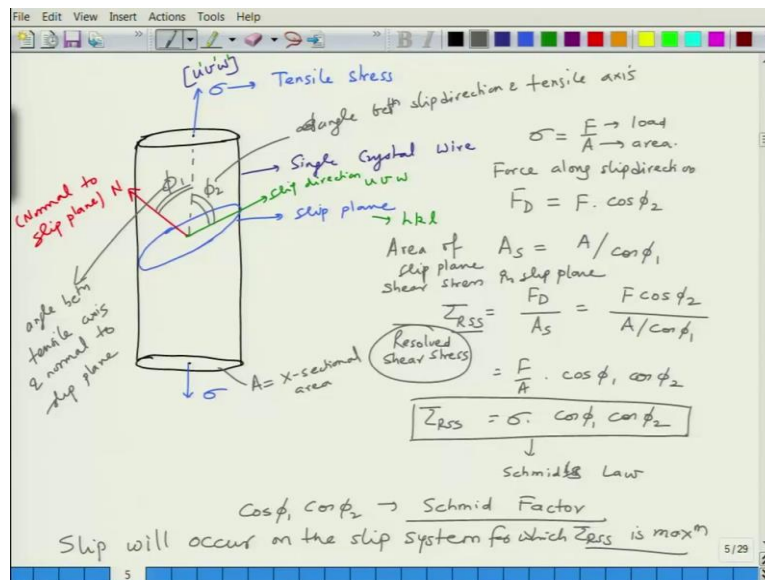 File Edit View Insert Actions Tools Help
[u'v'w']
σ → Tensile stress
angle betn slip direction & tensile axis
→ Single Crystal Wire
slip direction uvw
→ slip plane
→ hkl
(Normal to slip plane) N
ϕ1
ϕ2
angle betn
tensile axis
& normal to
slip plane
σ
A = x-sectional
area
σ = F/A
→ load
→ area.
Force along slip direction
FD = F. cos ϕ2
Area of
slip plane
As = A/cosϕ1
shear stress in slip plane
τRSS = FD/As = F cos ϕ2 / A/cosϕ1
Resolved
shear stress
= F/A . cos ϕ1 cos ϕ2
τRSS = σ. cosϕ1 cosϕ2
↓
Schmid's Law
Cosϕ1 cosϕ2 → Schmid Factor
Slip will occur on the slip system for which τRSS is maxm
5/29
5